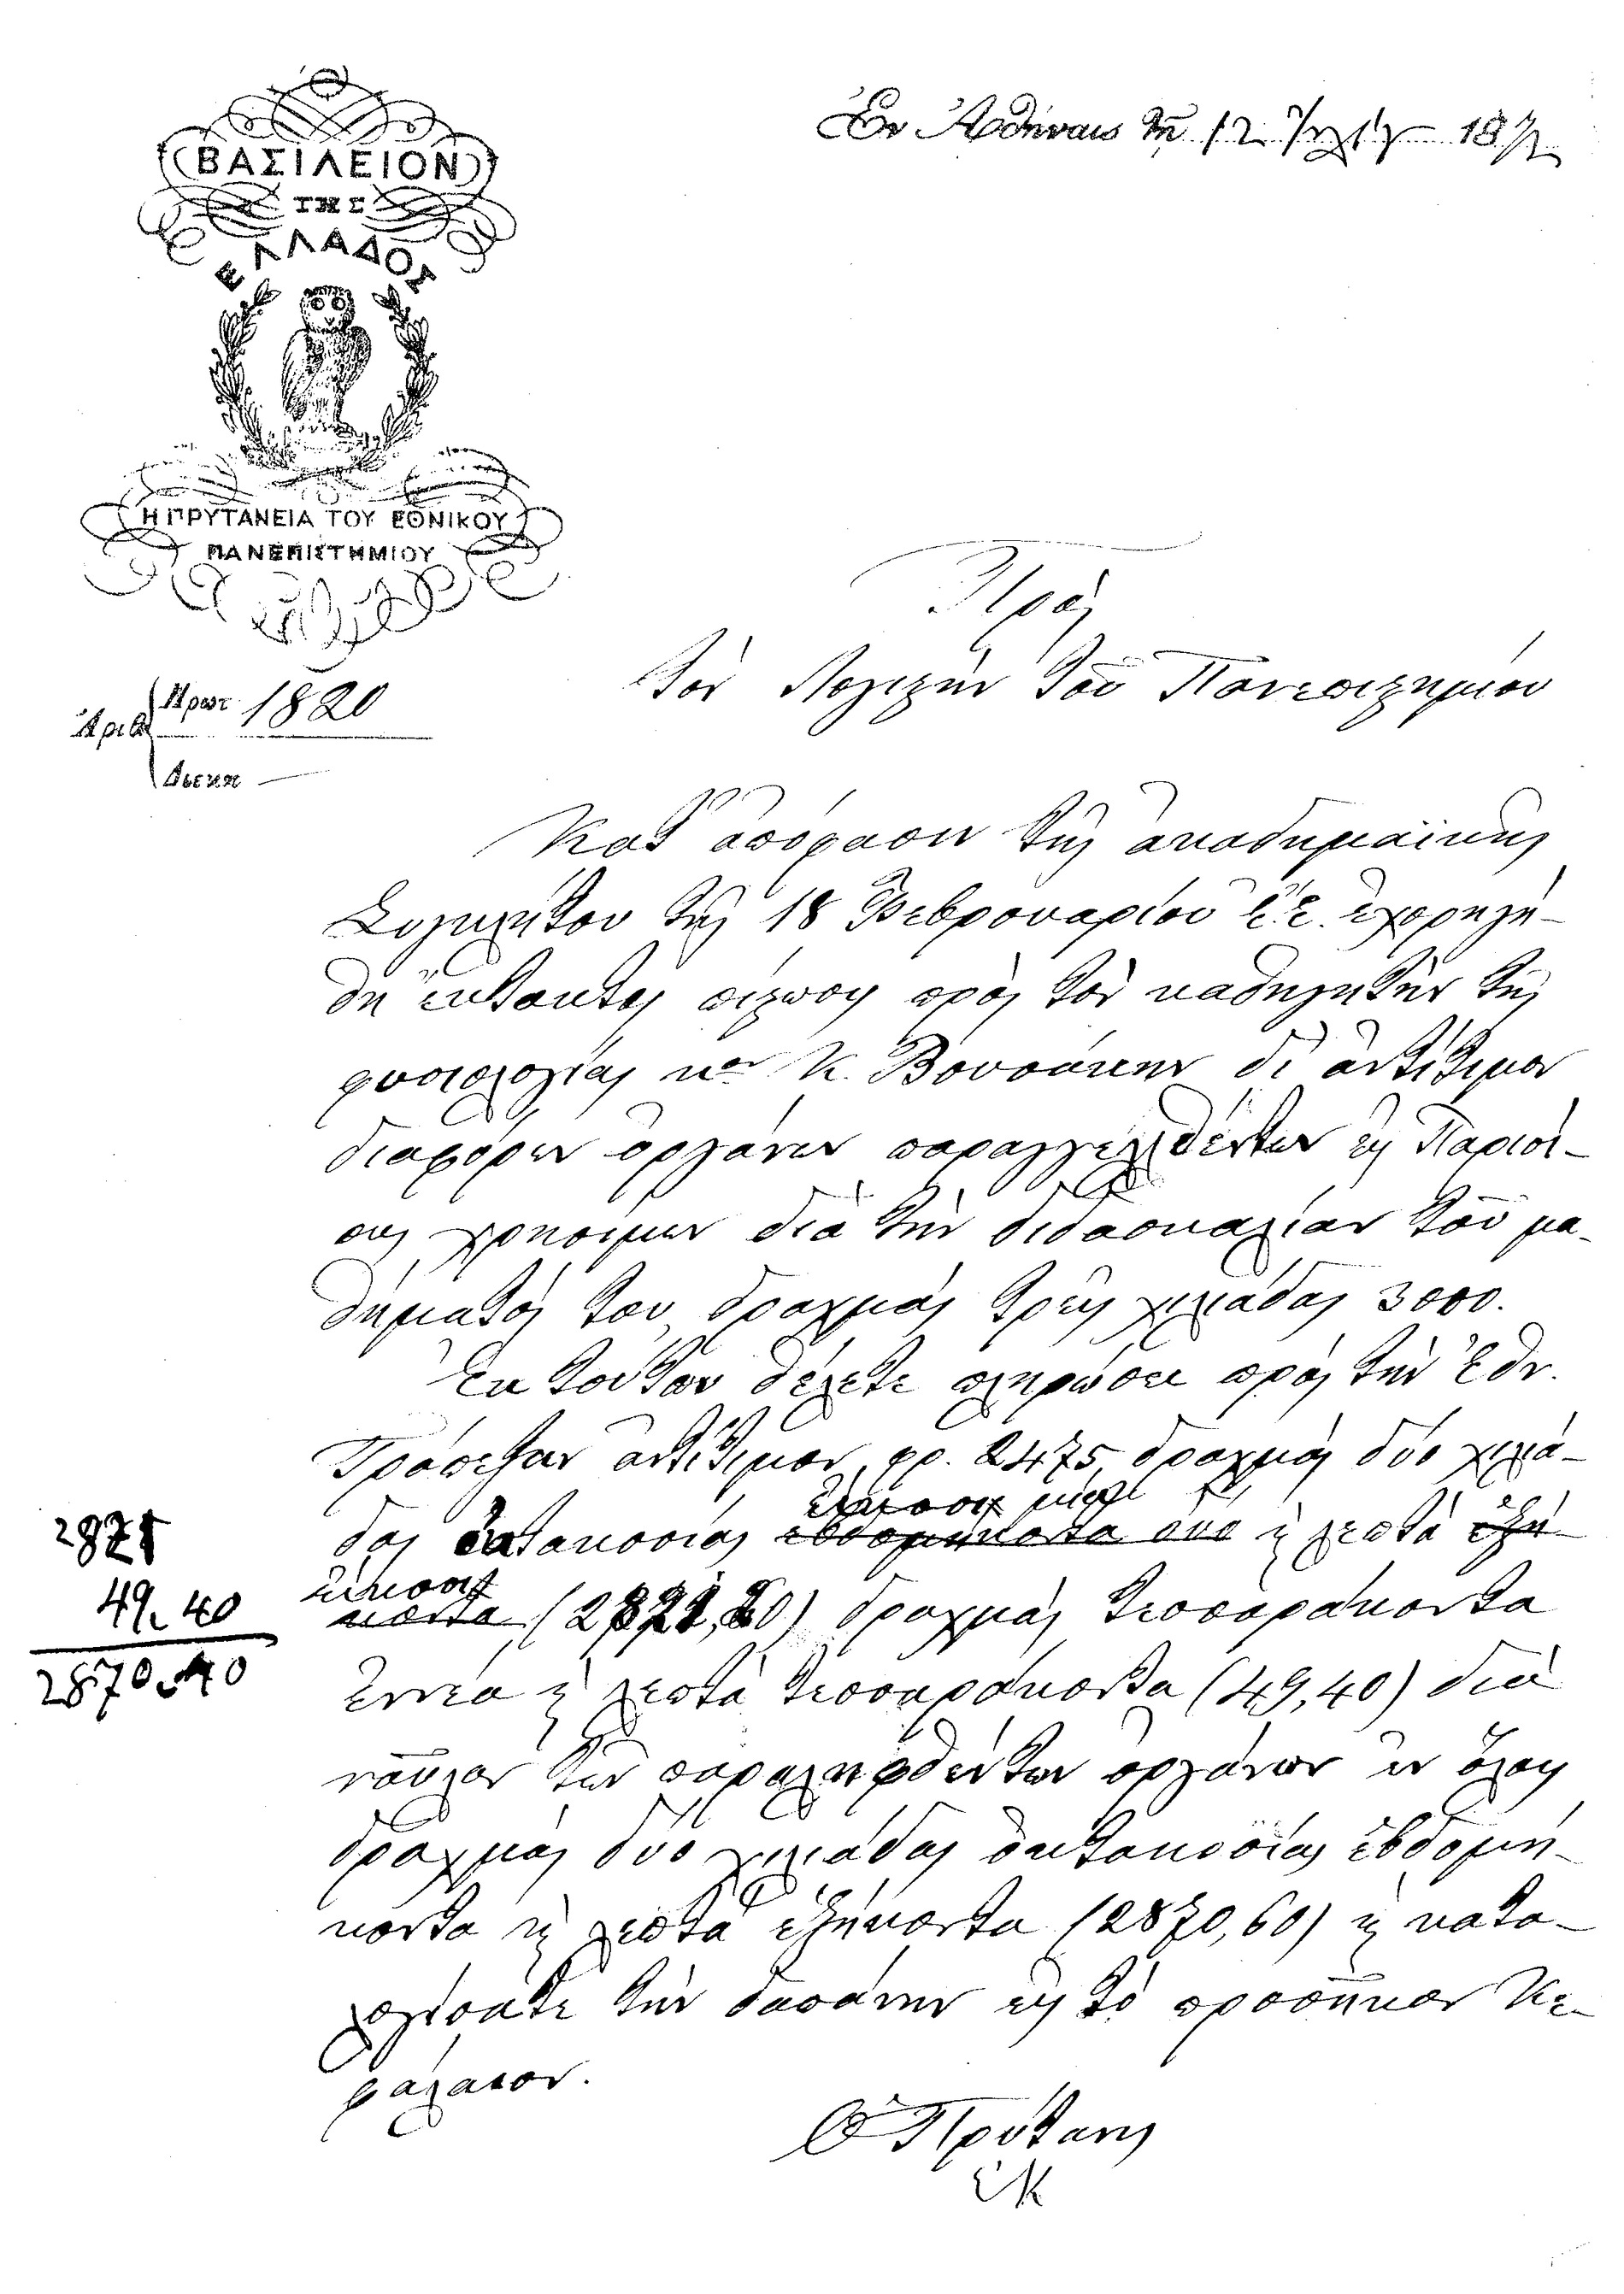 ΒΑΣΙΛΕΙΟΝ
ΤΗΣ
ΕΛΛΑΔΟΣ
Η ΠΡΥΤΑΝΕΙΑ ΤΟΥ ΕΘΝΙΚΟΥ
ΠΑΝΕΠΙΣΤΗΜΙΟΥ
Ἐν Ἀθήναις τῇ 12 18
Ἀριθ Πρωτ. 1820
Διεκπ
Πρὸς
τὸν τοῦ Πανεπιστημίου
Κατ' ἀπόφασιν τῆς ἀκαδημαϊκῆς
Συγκλήτου τῆς 18 Φεβρουαρίου ἐ.ἔ. ἐχορηγή-
θη ἔντοκος πίστωσις πρὸς τὸν καθηγητὴν τῆς
φυσιολογίας κον Κ. Βουσάκην δι' ἀντίτιμον
διαφόρων ὀργάνων παραγγελθέντων εἰς Παρισί-
ους χρησίμων διὰ τὴν διδασκαλίαν τοῦ μα-
θήματός του, δραχμὰς τρεῖς χιλιάδας 3000.
Ἐκ τούτου θέλετε πληρώσει πρὸς τὴν Ἐθν.
Τράπεζαν ἀντίτιμον φρ. 2475, δραχμὰς δύο χιλιά-
εἴκοσι μίαν
δας ὀκτακοσίας ἑβδομήκοντα δύο καὶ λεπτὰ ἑξή-
εἴκοσι
κοντα (2821,20) δραχμὰς τεσσαράκοντα
ἐννέα καὶ λεπτὰ τεσσαράκοντα (49,40) διὰ
ναῦλον τῶν παραληφθέντων ὀργάνων ἐν ὅλοις
δραχμὰς δύο χιλιάδας ὀκτακοσίας ἑβδομή-
κοντα καὶ λεπτὰ ἑξήκοντα (2870,60) καὶ κατα-
λογίσατε τὴν δαπάνην εἰς τὸ προσῆκον Κε-
φάλαιον.
Ὁ Πρύτανις
2821
49.40
2870.40